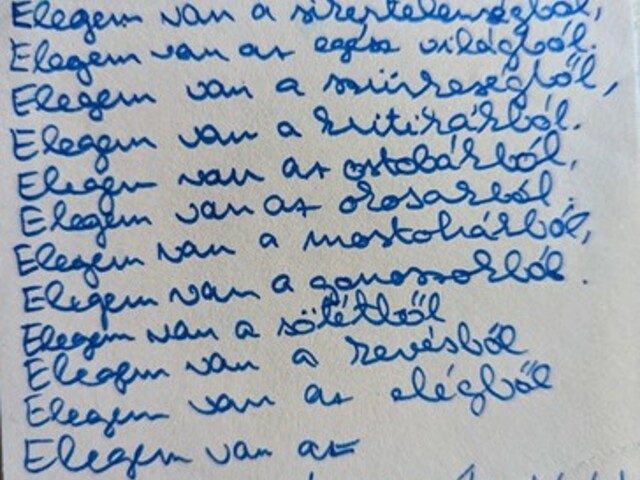 Elegem van a sikertelenségből,
Elegem van az egész világból.
Elegem van a szürkeségből,
Elegem van a kritikákból.
Elegem van az ostobákból,
Elegem van az okosakból.
Elegem van a mostohákból,
Elegem van a gonoszokból.
Elegem van a sötétből
Elegem van a kevésből
Elegem van az elégből
Elegem van az